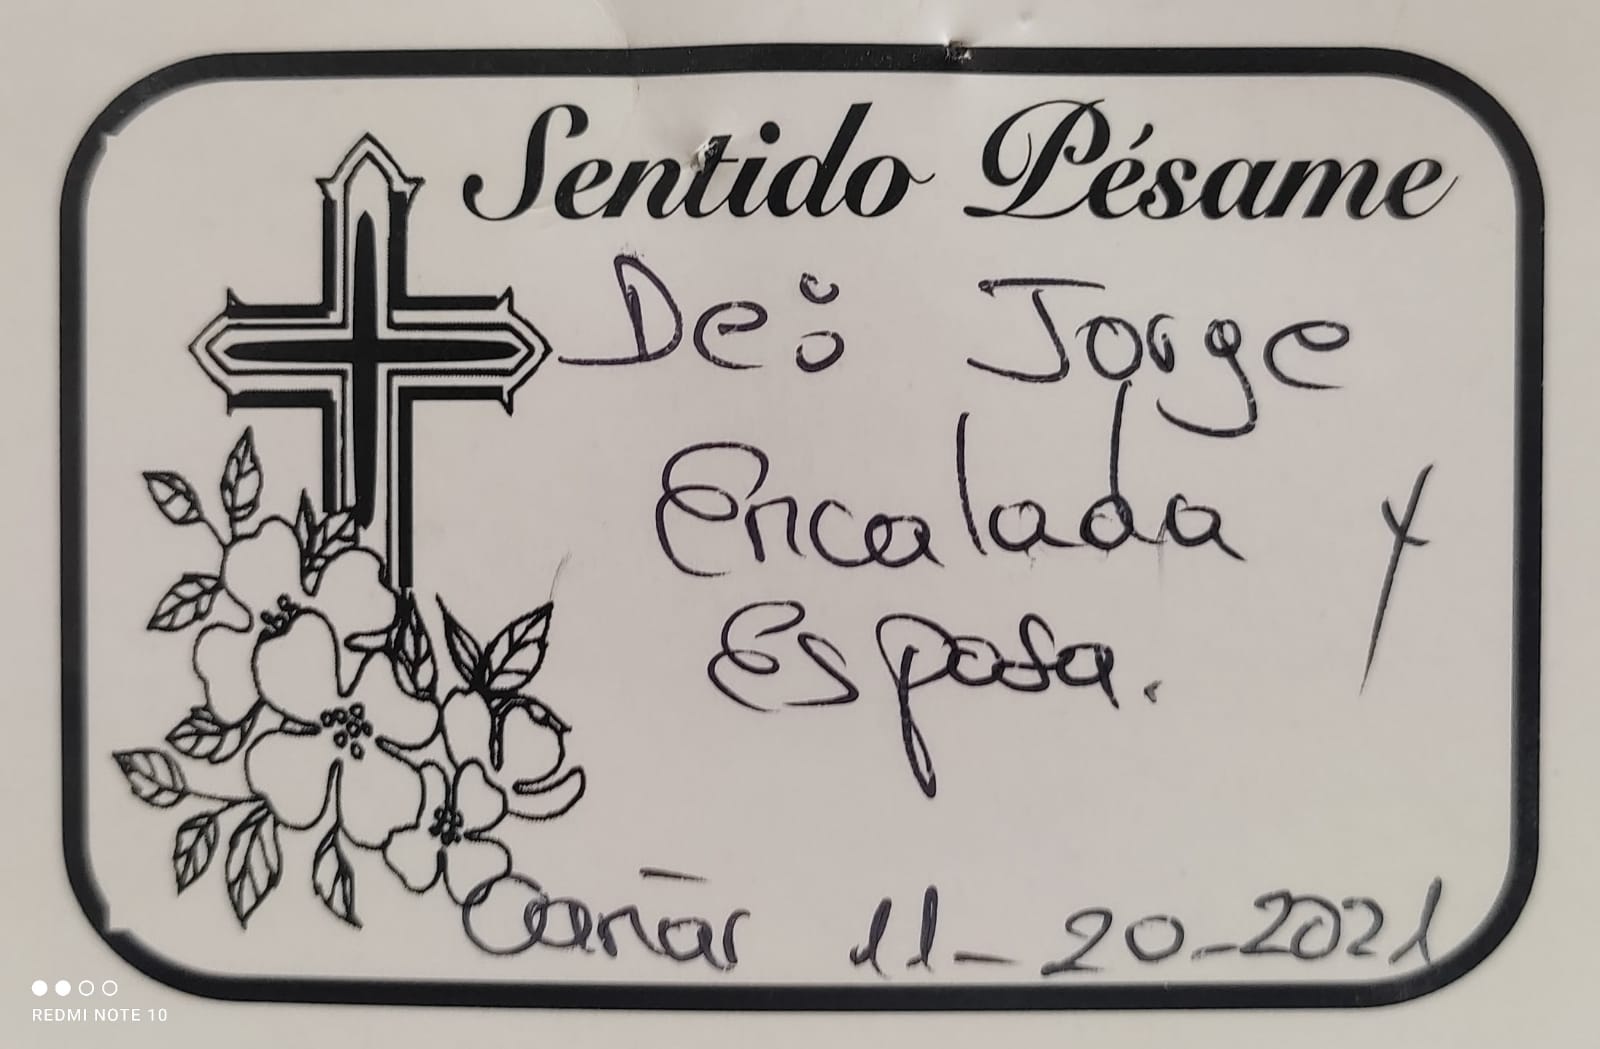 Sentido Pésame
De: Jorge
Encalada y
Esposa.
Cañar 11-20-2021
REDMI NOTE 10